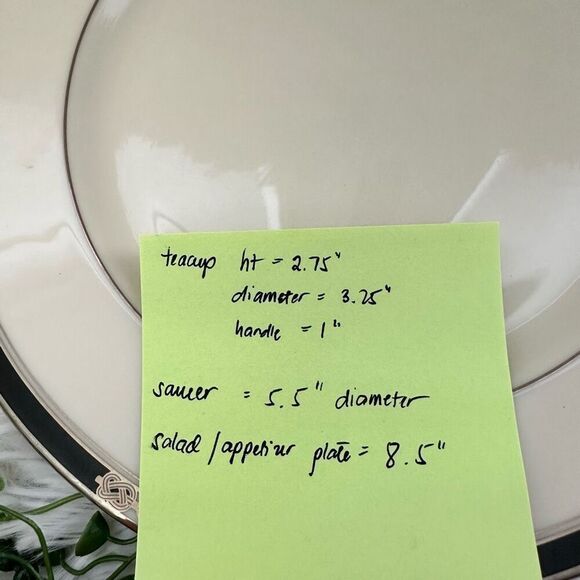 teacup ht = 2.75"
diameter = 3.25"
handle = 1"
saucer = 5.5" diameter
salad/appetizer plate = 8.5"